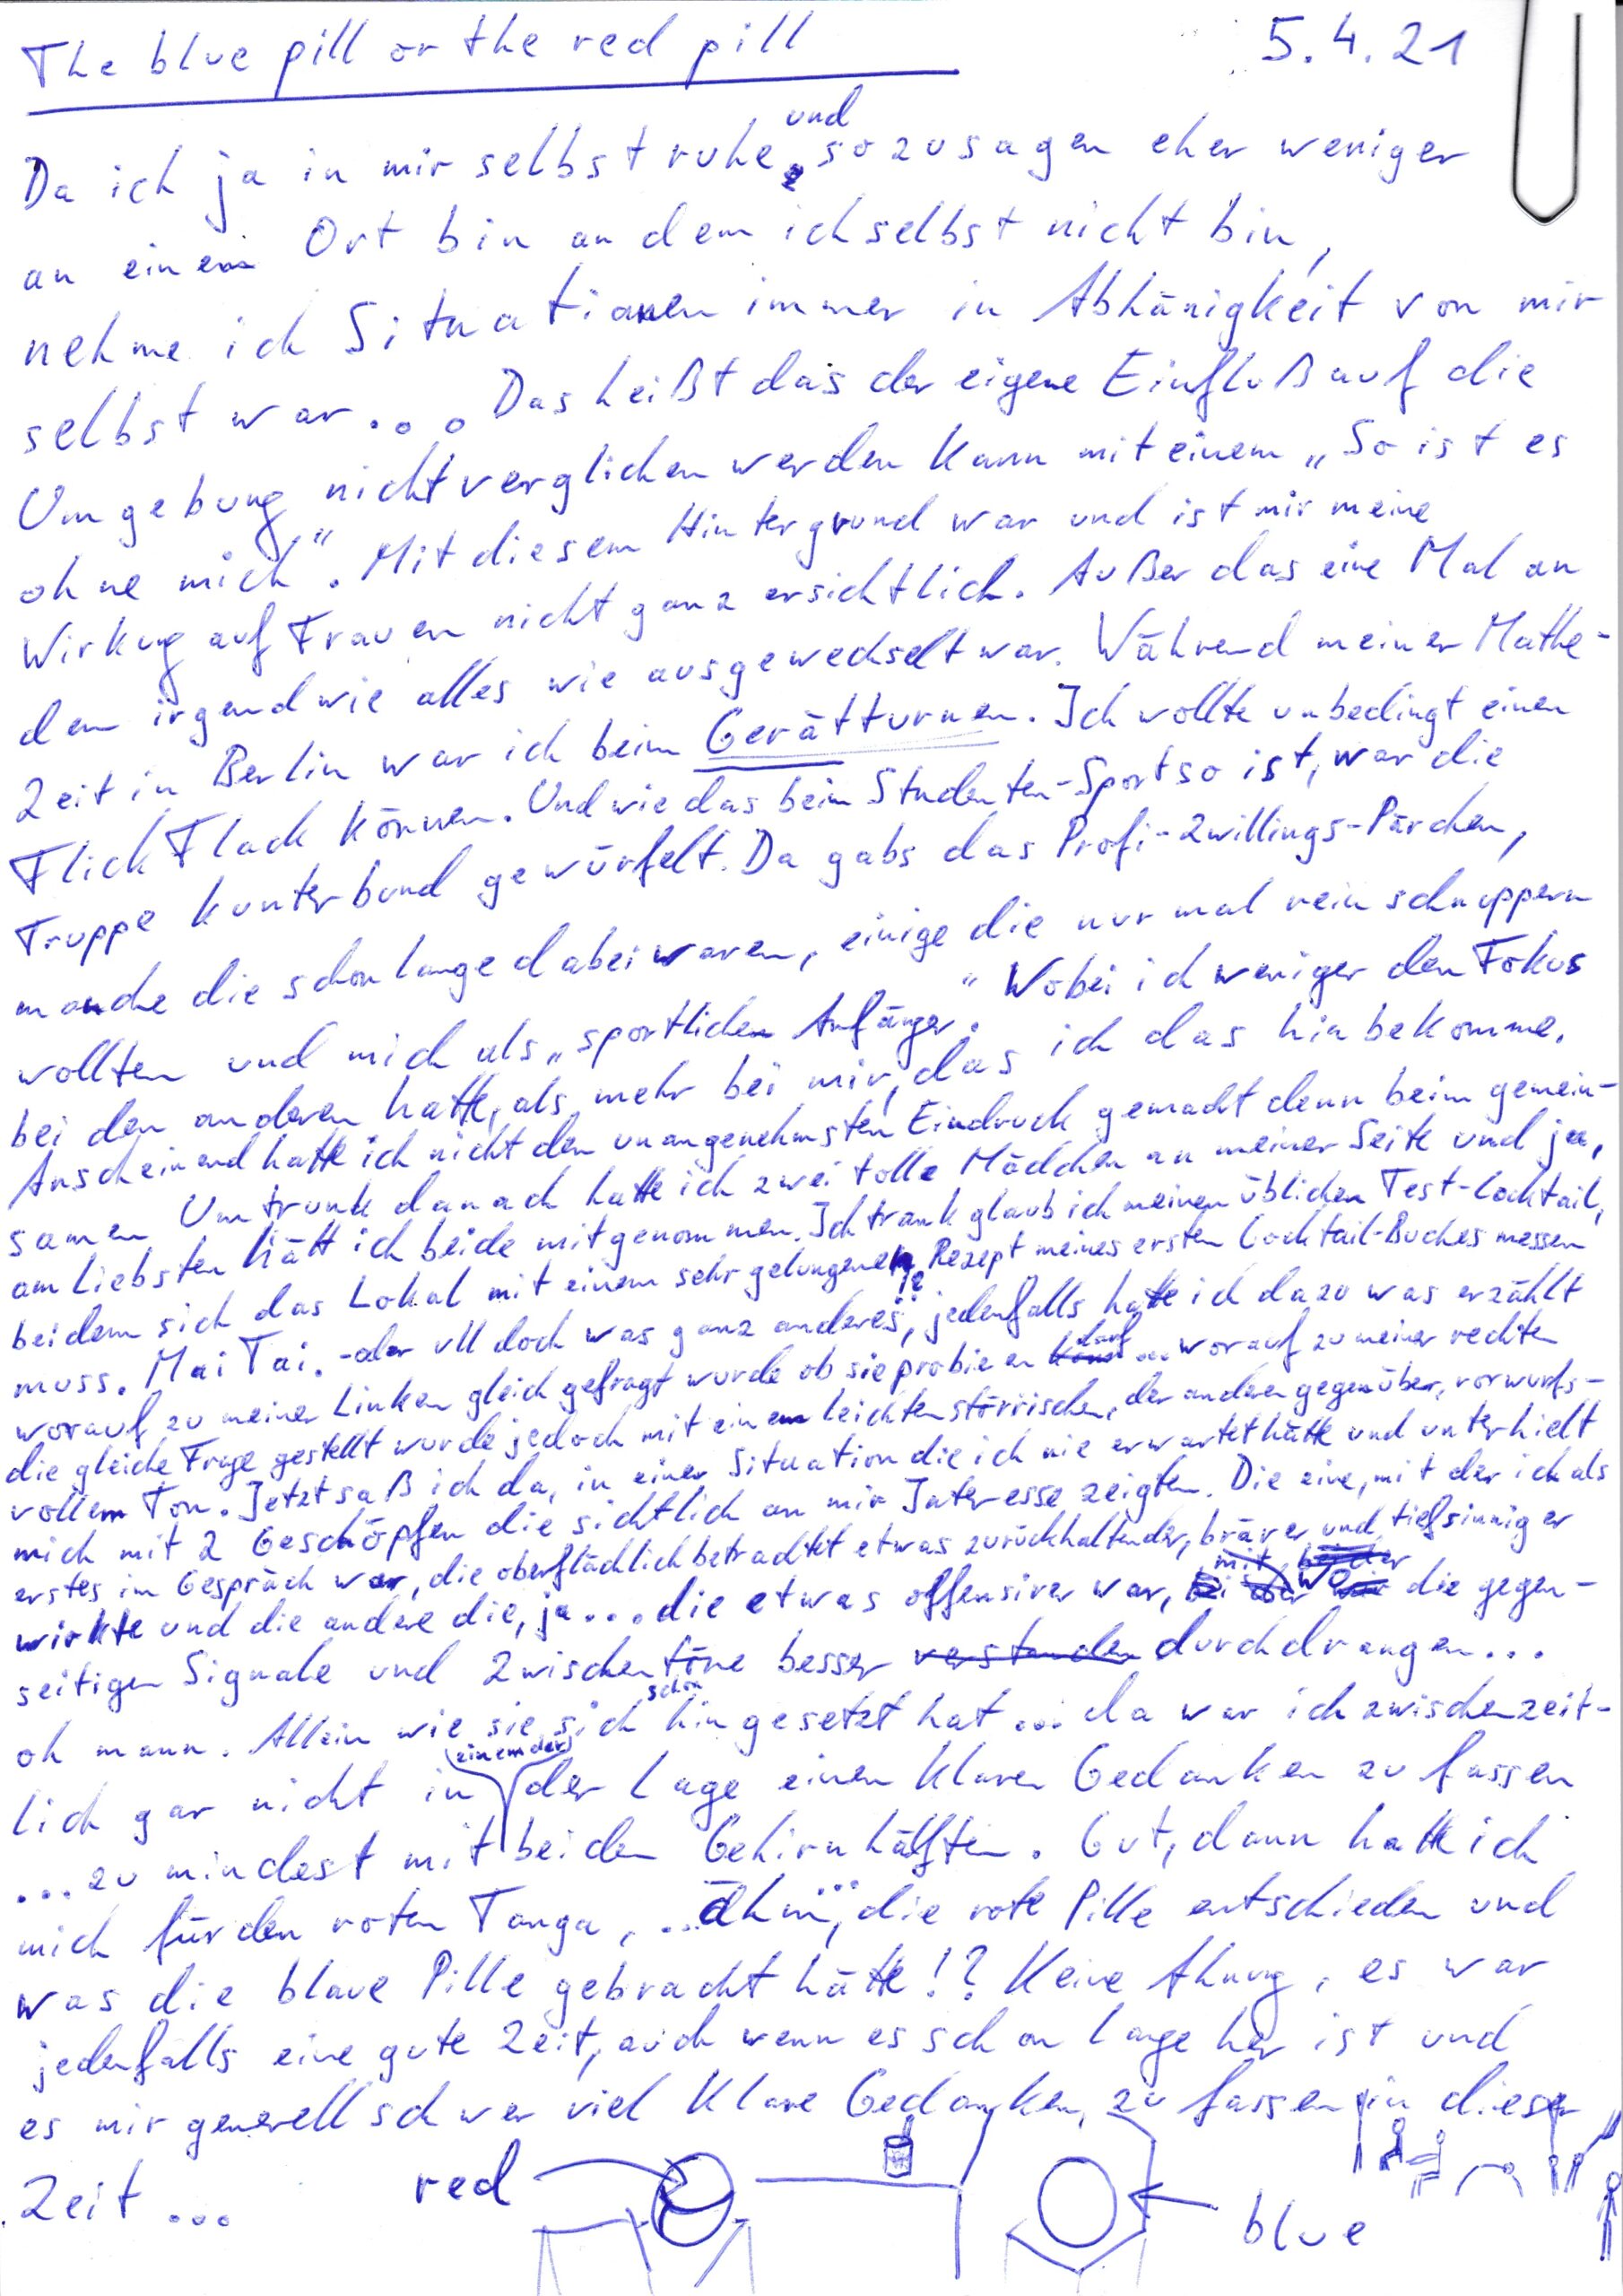 The blue pill or the red pill 5.4.21
Da ich ja in mir selbst ruhe und sozusagen eher weniger
an einem Ort bin an dem ich selbst nicht bin,
nehme ich Situationen immer in Abhänigkeit von mir
selbst war... Das heißt das der eigene Einfluß auf die
Umgebung nicht verglichen werden kann mit einem „So ist es
ohne mich". Mit diesem Hintergrund war und ist mir meine
Wirkug auf Frauen nicht ganz ersichtlich. Außer das eine Mal an
dem irgendwie alles wie ausgewechselt war. Während meiner Mathe-
Zeit in Berlin war ich beim Gerätturnen. Ich wollte unbedingt einen
Flick Flack können. Und wie das beim Studenten-Sport so ist, war die
Truppe kunterbund gewürfelt. Da gabs das Profi-Zwillings-Pärchen,
manche die schon lange dabei waren, einige die nur mal rein schnuppern
wollten und mich als „sportlichen Anfänger." Wobei ich weniger den Fokus
bei den anderen hatte, als mehr bei mir, das ich das hinbekomme.
Anscheinend hatte ich nicht den unangenehmsten Eindruck gemacht denn beim gemein-
samen Umtrunk danach hatte ich zwei tolle Mädchen an meiner Seite und ja,
am liebsten hätt ich beide mitgenommen. Ich trank glaub ich meinen üblichen Test-Cocktail,
beidem sich das Lokal mit einem sehr gelungenen Rezept meines ersten Cocktail-Buches messen
muss. Mai Tai. - oder vll doch was ganz anderes!?, jedenfalls hatte ich dazu was erzählt
worauf zu meiner Linken gleich gefragt wurde ob sie probieren darf ... worauf zu meiner rechten
die gleiche Frage gestellt wurde jedoch mit einem leichten störrischen, der anderen gegenüber, vorwurfs-
vollem Ton. Jetzt saß ich da, in einer Situation die ich nie erwartet hätte und unterhielt
mich mit 2 Geschöpfen die sichtlich an mir Interesse zeigten. Die eine, mit der ich als
erstes im Gespräch war, die oberflächlich betrachtet etwas zurückhaltender, bräver und tiefsinniger
wirkte und die andere die, ja... die etwas offensiver war, wo die gegen-
seitigen Signale und Zwischentöne besser verstanden durchdrangen...
oh mann. Allein wie sie sich schon hingesetzt hat ... da war ich zwischenzeit-
lich gar nicht in (einem der) der Lage einen klaren Gedanken zu fassen
... zu mindest mit beiden Gehirnhälften. Gut, dann hatte ich
mich für den roten Tanga, ...ähm..., die rote Pille entschieden und
was die blaue Pille gebracht hätte!? Keine Ahnung, es war
jedenfalls eine gute Zeit, auch wenn es schon lange her ist und
es mir generell schwer viel klare Gedanken zu fassen in dieser
Zeit ...
red
blue